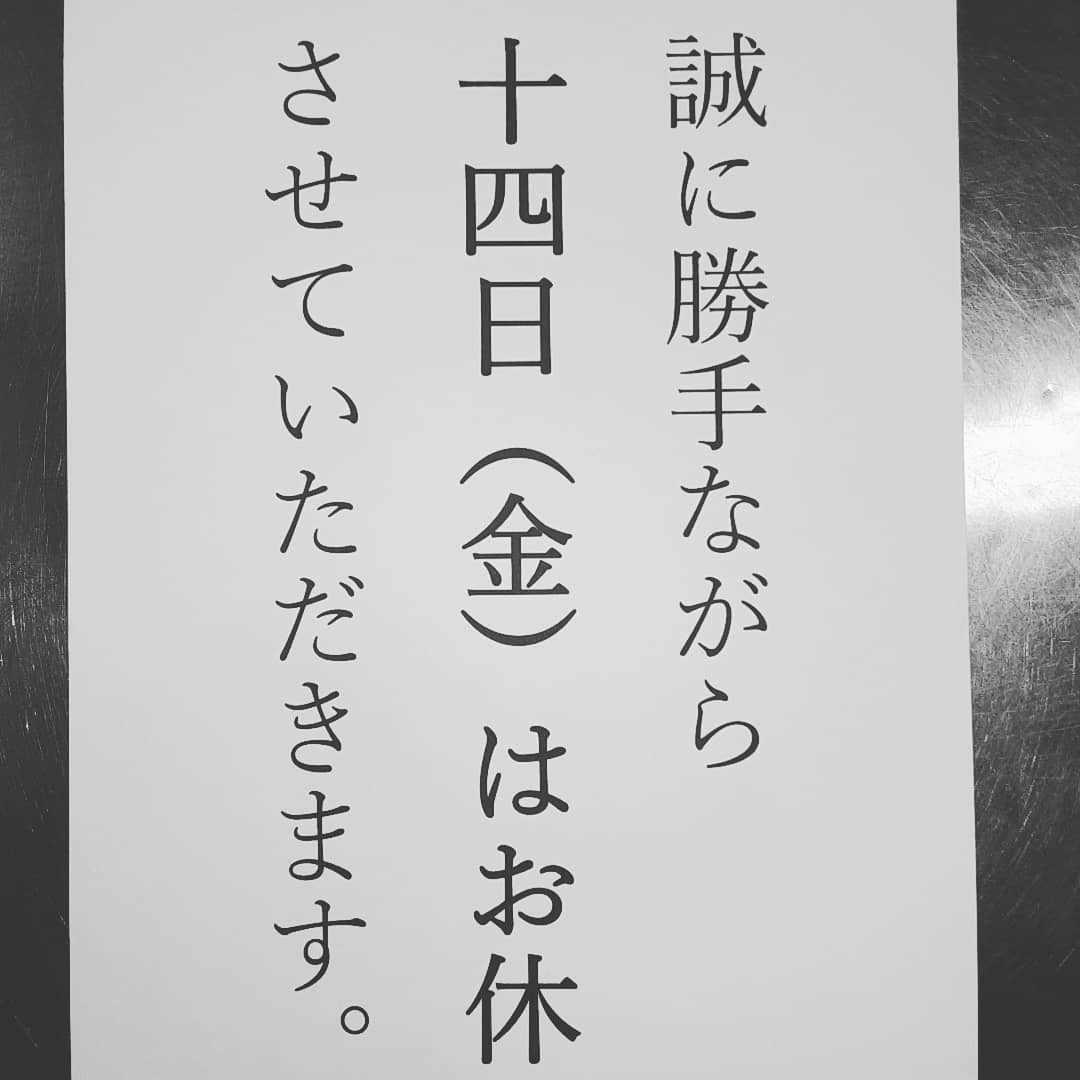 誠に勝手ながら
十四日（金）はお休
させていただきます。